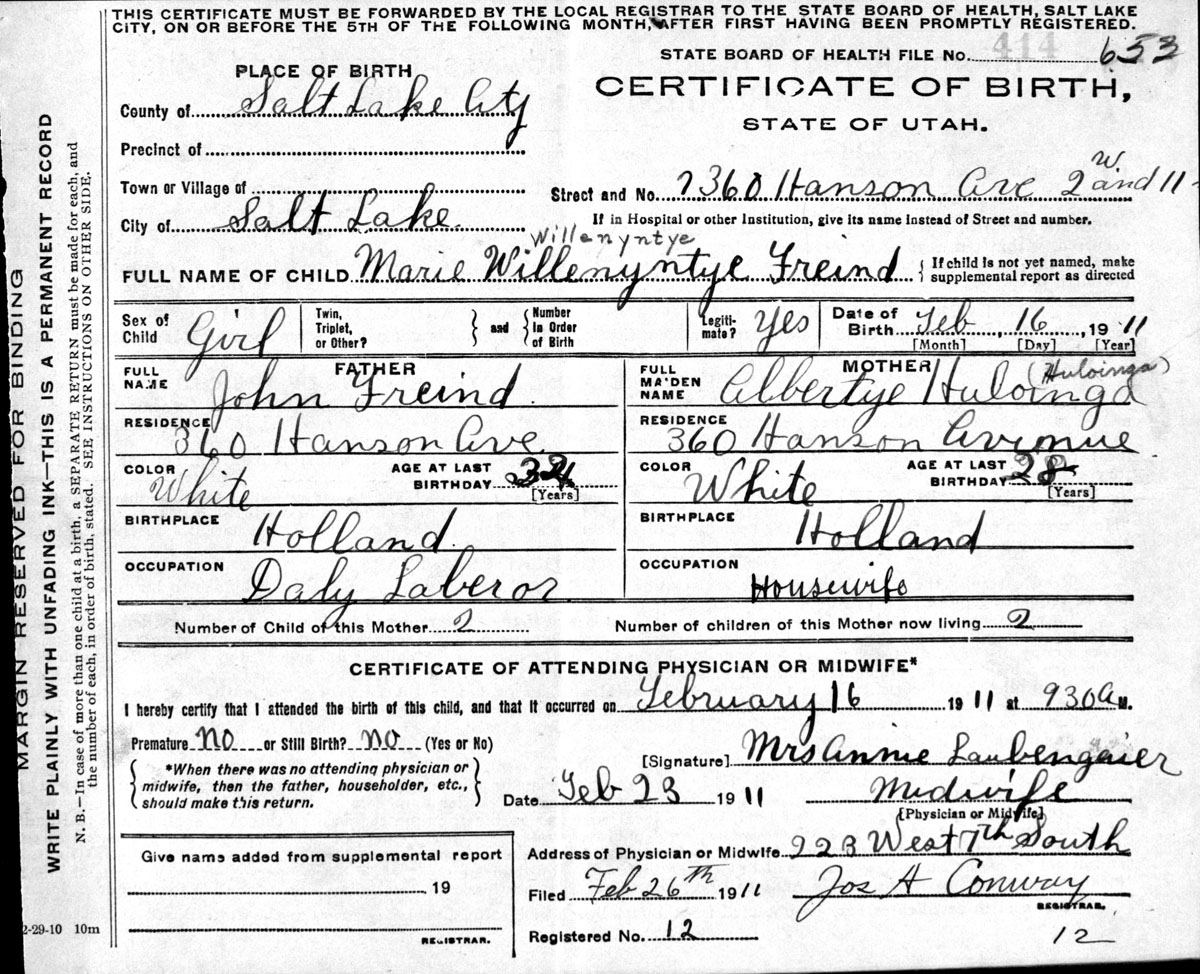 THIS CERTIFICATE MUST BE FORWARDED BY THE LOCAL REGISTRAR TO THE STATE BOARD OF HEALTH, SALT LAKE
CITY, ON OR BEFORE THE 5TH OF THE FOLLOWING MONTH, AFTER FIRST HAVING BEEN PROMPTLY REGISTERED.
STATE BOARD OF HEALTH FILE No. 414 653
PLACE OF BIRTH
CERTIFICATE OF BIRTH,
STATE OF UTAH.
County of Salt Lake City
Precinct of
Town or Village of
Street and No. 360 Hanson Ave 2 W and 11
City of Salt Lake.
If in Hospital or other Institution, give its name instead of Street and number.
Willenyntye
FULL NAME OF CHILD Marie Willenyntye Freind { If child is not yet named, make
supplemental report as directed
Sex of Child Girl Twin, Triplet, or Other? } and { Number in Order of Birth Legitimate? Yes Date of Birth Feb, 16, 1911
[Month] [Day] [Year]
FATHER MOTHER
FULL NAME John Freind. FULL MAIDEN NAME Albertye Huloinga (Huloinga)
RESIDENCE 360 Hanson Ave. RESIDENCE 360 Hanson Avenue
COLOR White AGE AT LAST BIRTHDAY COLOR White AGE AT LAST BIRTHDAY 28
[Years] [Years]
BIRTHPLACE Holland. BIRTHPLACE Holland
OCCUPATION Daly Laberor OCCUPATION Housewife
Number of Child of this Mother 2 Number of children of this Mother now living 2
CERTIFICATE OF ATTENDING PHYSICIAN OR MIDWIFE*
I hereby certify that I attended the birth of this child, and that it occurred on February 16 1911 at 930 A M.
Premature No or Still Birth? No (Yes or No)
[Signature] Mrs Annie Laubengaier
{ *When there was no attending physician or
midwife, then the father, householder, etc.,
should make this return. }
Date Feb 23 1911 Midwife
[Physician or Midwife]
Give name added from supplemental report
Address of Physician or Midwife 223 West 7th South
19
Filed Feb 26th 1911 Jos A Conway
REGISTRAR.
Registered No. 12
REGISTRAR.
12
2-29-10 10m
MARGIN RESERVED FOR BINDING
WRITE PLAINLY WITH UNFADING INK—THIS IS A PERMANENT RECORD
N. B.—In case of more than one child at a birth, a SEPARATE RETURN must be made for each, and
the number of each, in order of birth, stated. SEE INSTRUCTIONS ON OTHER SIDE.